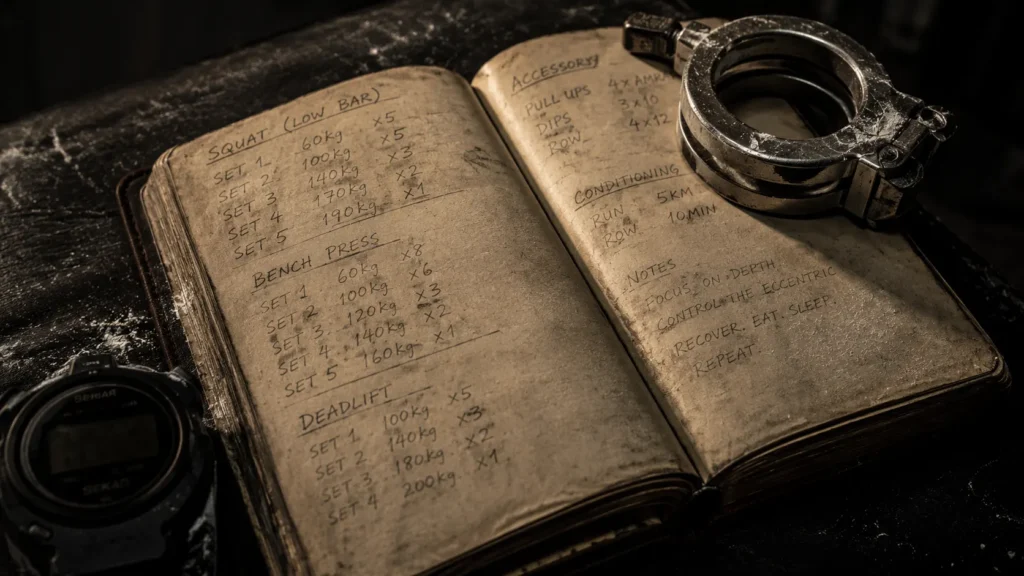 SQUAT (LOW BAR)
SET 1 60kg x5
SET 2 100kg x5
SET 3 140kg x3
SET 4 170kg x2
SET 5 190kg x1
BENCH PRESS
SET 1 60kg x8
SET 2 100kg x6
SET 3 120kg x3
SET 4 140kg x2
SET 5 160kg x1
DEADLIFT
SET 1 100kg x5
SET 2 140kg x3
SET 3 180kg x2
SET 4 200kg x1
ACCESSORY
PULL-UPS 4x
DIPS 3x10
ROW 4x12
CONDITIONING
RUN 5KM
ROW 10MIN
NOTES
FOCUS ON DEPTH
CONTROL THE ECCENTRIC
RECOVER. EAT. SLEEP.
REPEAT.